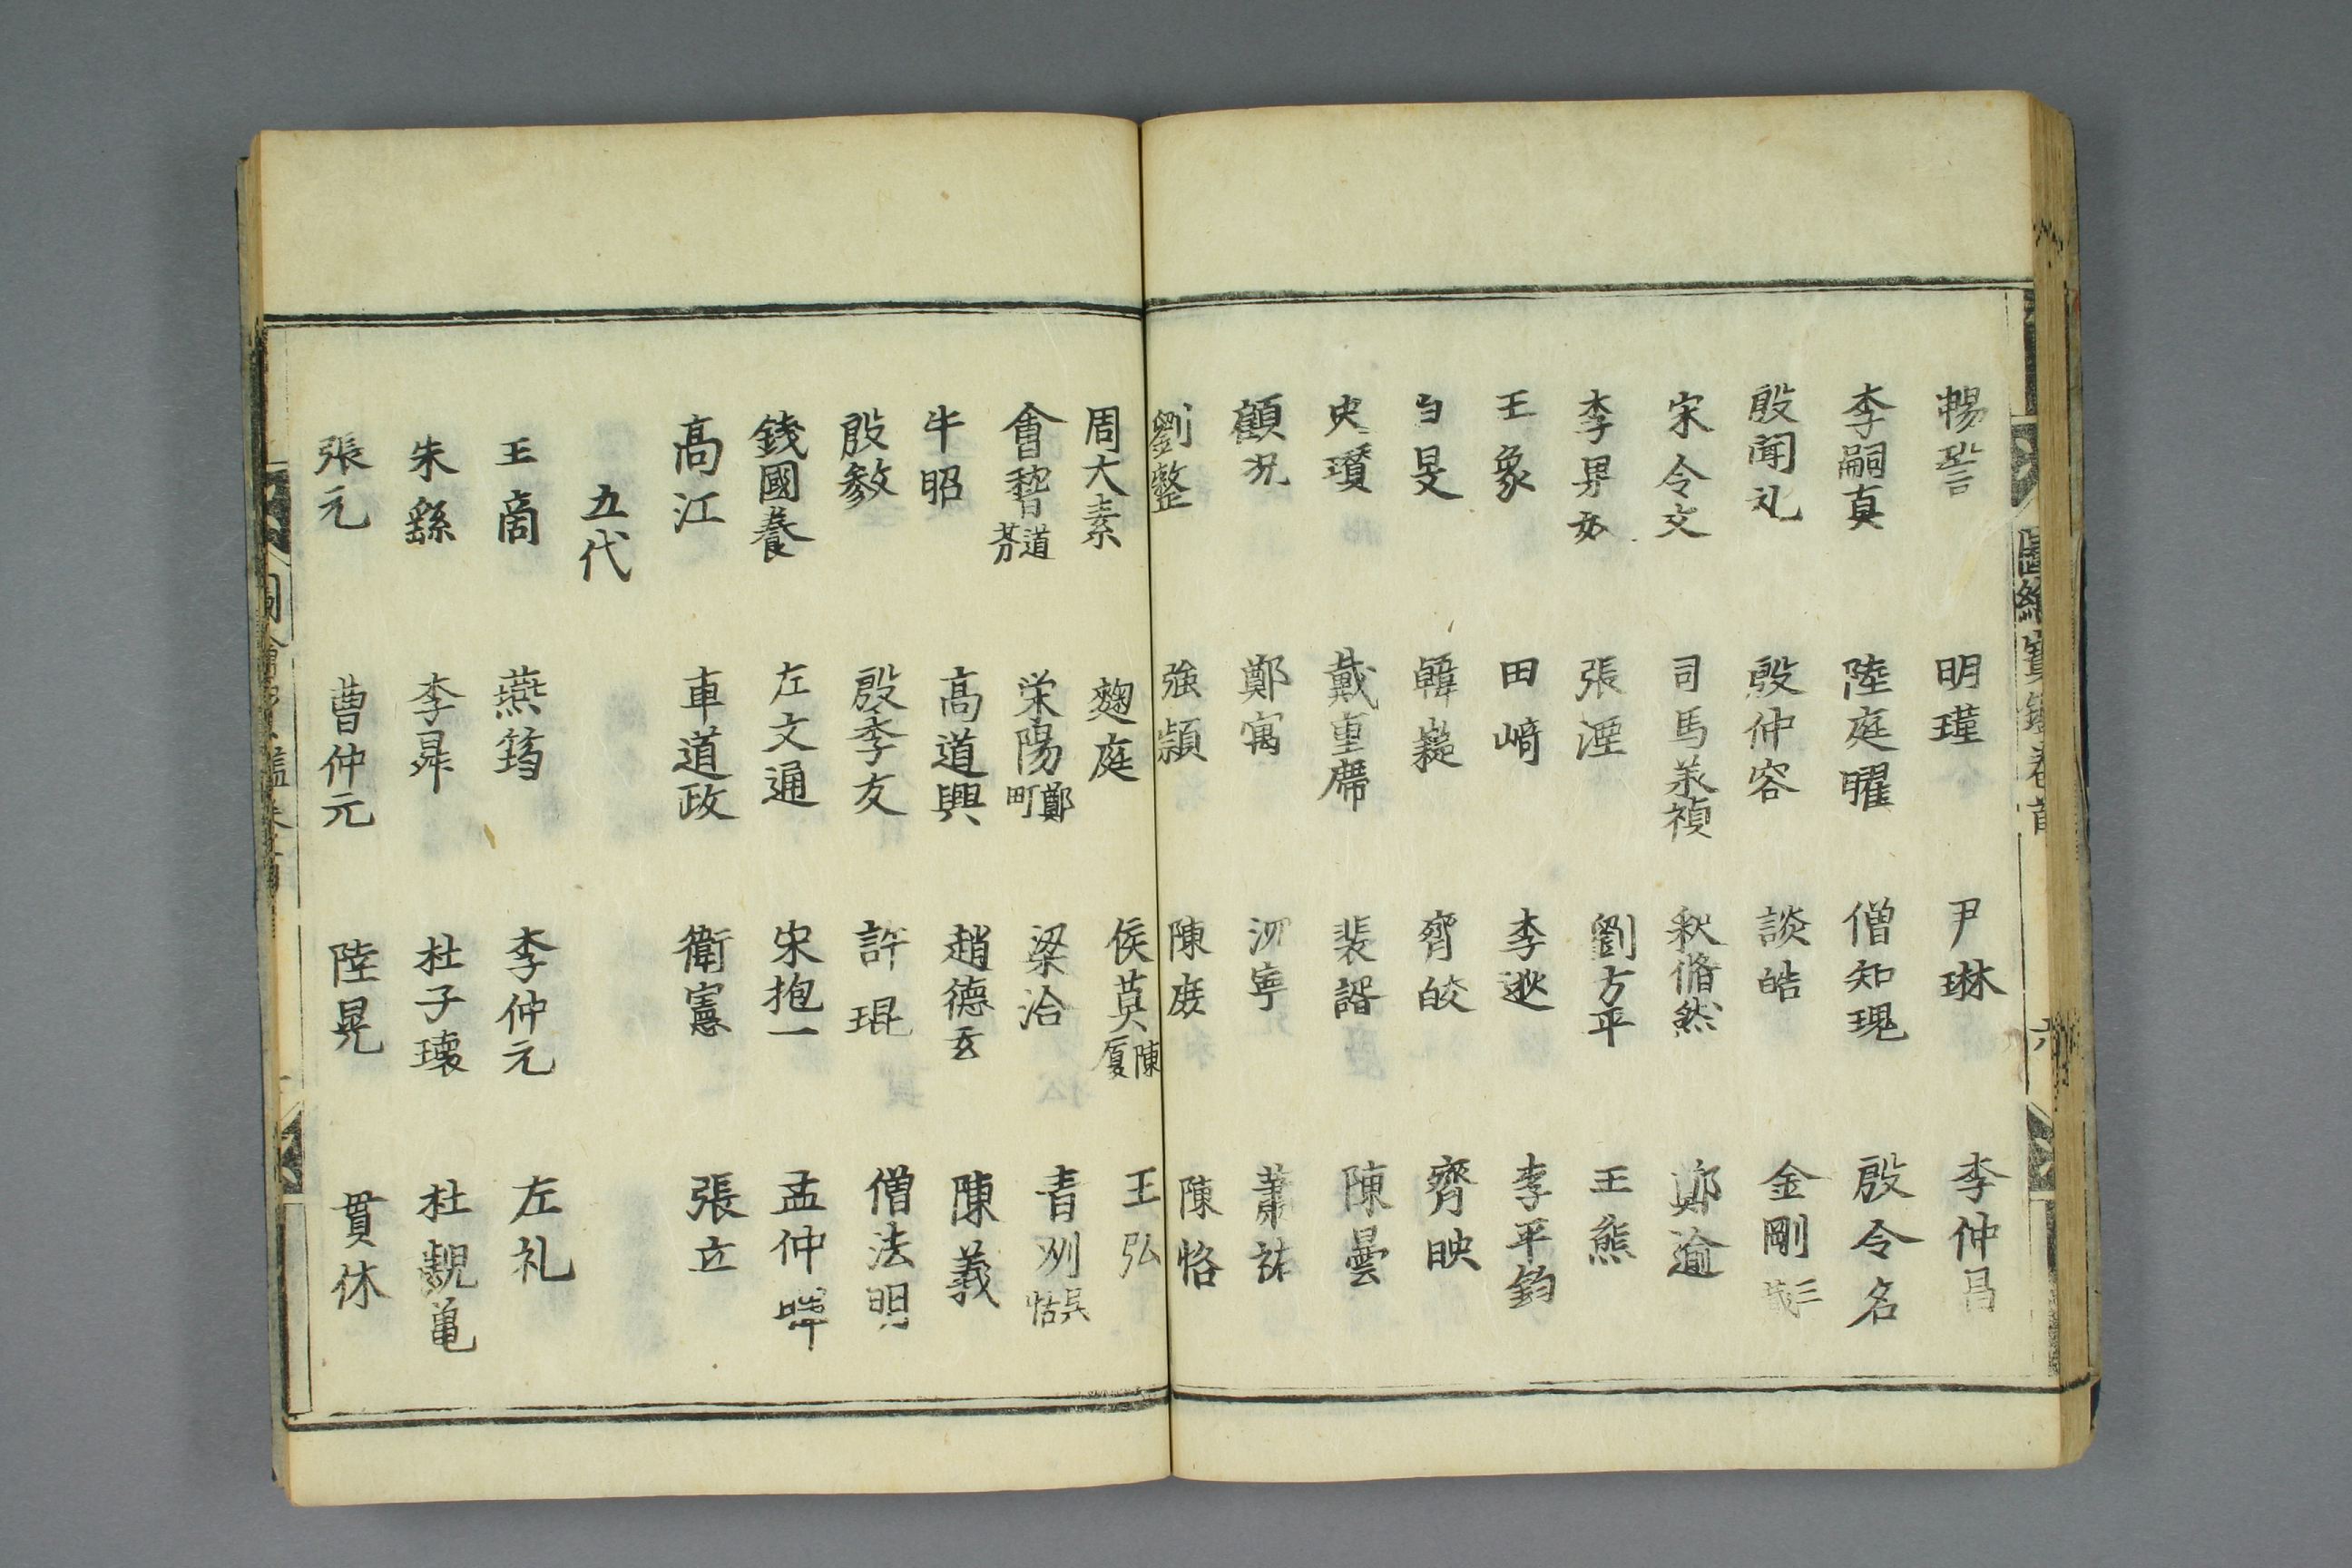 圖繪寶鑑卷首
六
暢𧦬 明瑾 尹琳 李仲昌
李嗣真 陸庭曜 僧知瑰 殷令名
殷聞礼 殷仲容 談皓 金剛三藏
宋令文 司馬承禎 秋脩然 鄭逾
李果奴 張湮 劉方平 王熊
王象 田﨑 李逖 李平鈞
白旻 韓嶷 齊皎 齊映
史瓚 戴重席 裴諝 陳曇
顧况 鄭寓 沔寧 蕭祐
劉整 強頴 陳庶 陳恪
周大素 麴庭 侯莫陳厦 王弘
會稽道芬 栄陽鄭町 梁洽 青州吳恬
牛昭 高道興 趙德玄 陳義
殷敎 殷季友 許琨 僧法明
錢國養 左文通 宋抱一 孟仲暉
高江 車道政 衛憲 張立
五代
王喬 燕筠 李仲元 左礼
朱繇 李昇 杜子瓌 杜覩亀
張元 曹仲元 陸晃 貫休